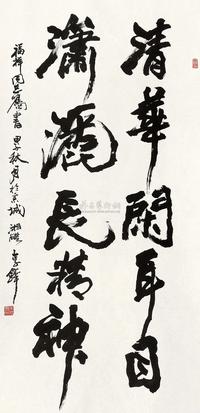 清華開耳目
瀟灑長精神
福祥同志属書 甲子秋月於京城 湘人 李鐸